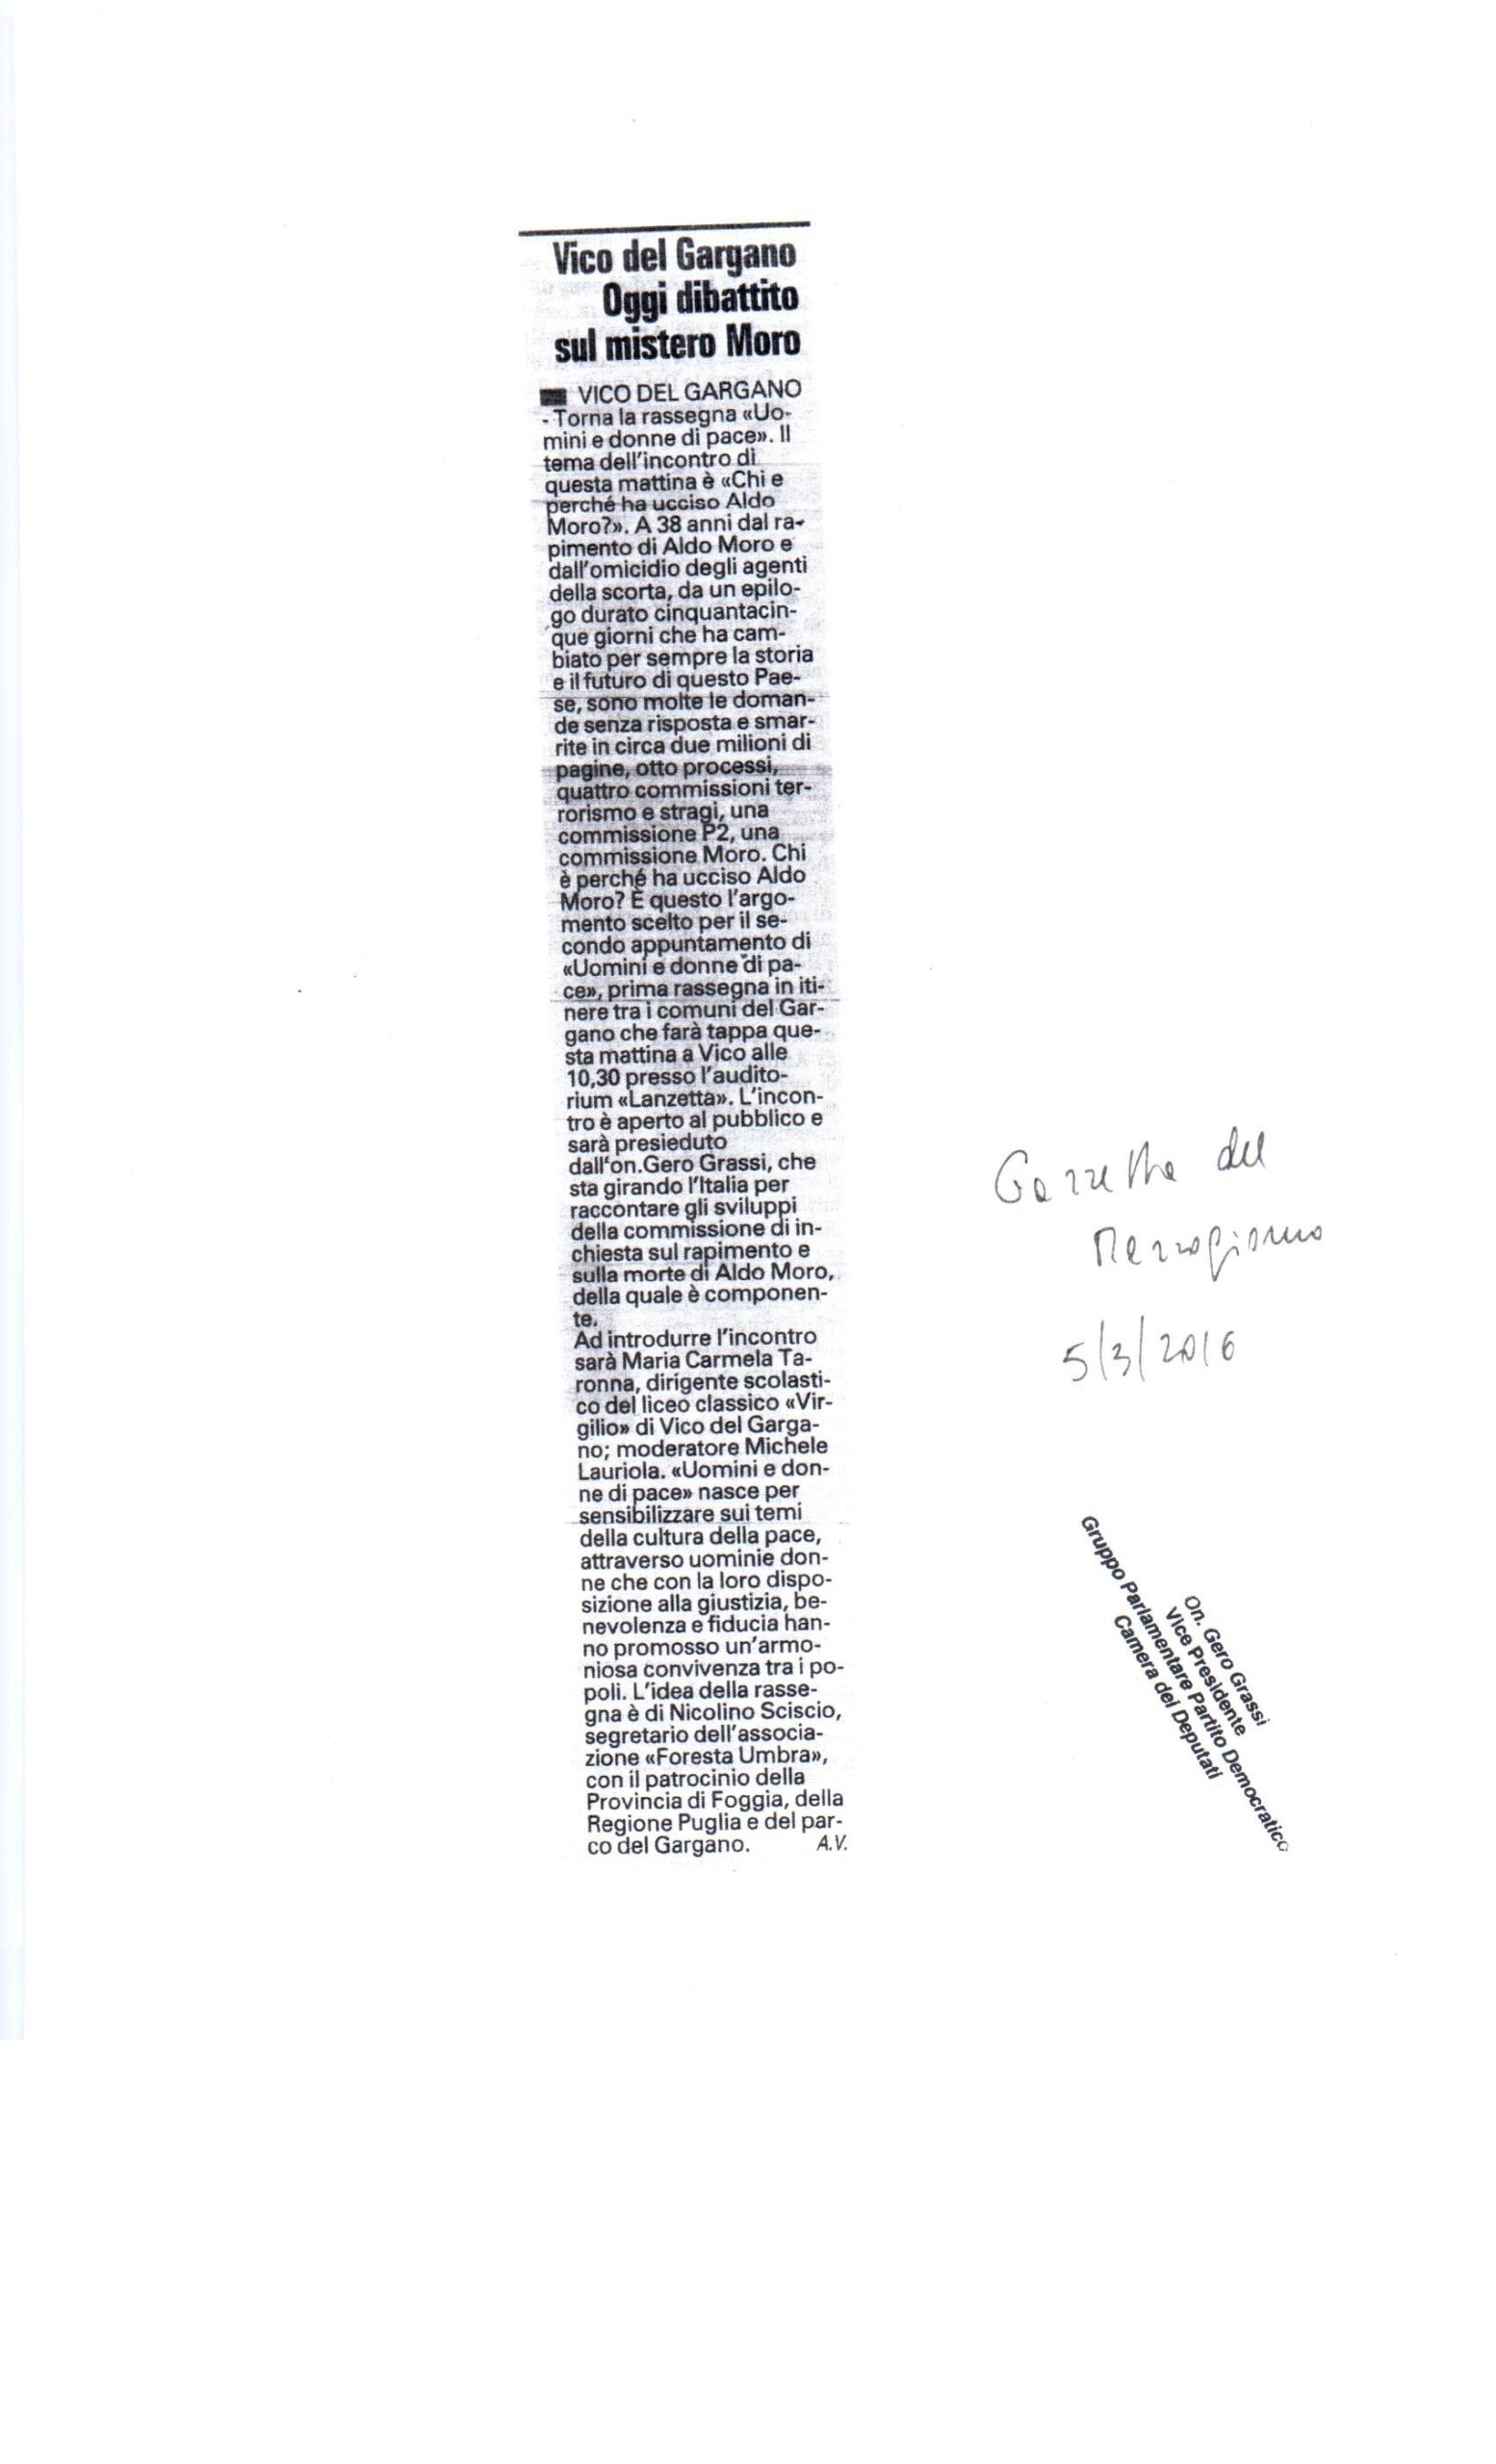 Vico del Gargano
Oggi dibattito
sul mistero Moro
VICO DEL GARGANO
- Torna la rassegna «Uo-
mini e donne di pace». Il
tema dell'incontro di
questa mattina è «Chi e
perché ha ucciso Aldo
Moro?». A 38 anni dal ra-
pimento di Aldo Moro e
dall'omicidio degli agenti
della scorta, da un epilo-
go durato cinquantacin-
que giorni che ha cam-
biato per sempre la storia
e il futuro di questo Pae-
se, sono molte le doman-
de senza risposta e smar-
rite in circa due milioni di
pagine, otto processi,
quattro commissioni ter-
rorismo e stragi, una
commissione P2, una
commissione Moro. Chi
è perché ha ucciso Aldo
Moro? È questo l'argo-
mento scelto per il se-
condo appuntamento di
«Uomini e donne di pa-
ce», prima rassegna in iti-
nere tra i comuni del Gar-
gano che farà tappa que-
sta mattina a Vico alle
10,30 presso l'audito-
rium «Lanzetta». L'incon-
tro è aperto al pubblico e
sarà presieduto
dall'on.Gero Grassi, che
sta girando l'Italia per
raccontare gli sviluppi
della commissione di in-
chiesta sul rapimento e
sulla morte di Aldo Moro,
della quale è componen-
te.
Ad introdurre l'incontro
sarà Maria Carmela Ta-
ronna, dirigente scolasti-
co del liceo classico «Vir-
gilio» di Vico del Garga-
no; moderatore Michele
Lauriola. «Uomini e don-
ne di pace» nasce per
sensibilizzare sui temi
della cultura della pace,
attraverso uominie don-
ne che con la loro dispo-
sizione alla giustizia, be-
nevolenza e fiducia han-
no promosso un'armo-
niosa convivenza tra i po-
poli. L'idea della rasse-
gna è di Nicolino Sciscio,
segretario dell'associa-
zione «Foresta Umbra»,
con il patrocinio della
Provincia di Foggia, della
Regione Puglia e del par-
co del Gargano. A.V.
Gazzetta del
Mezzogiorno
5/3/2016
On. Gero Grassi
Vice Presidente
Gruppo Parlamentare Partito Democratico
Camera dei Deputati